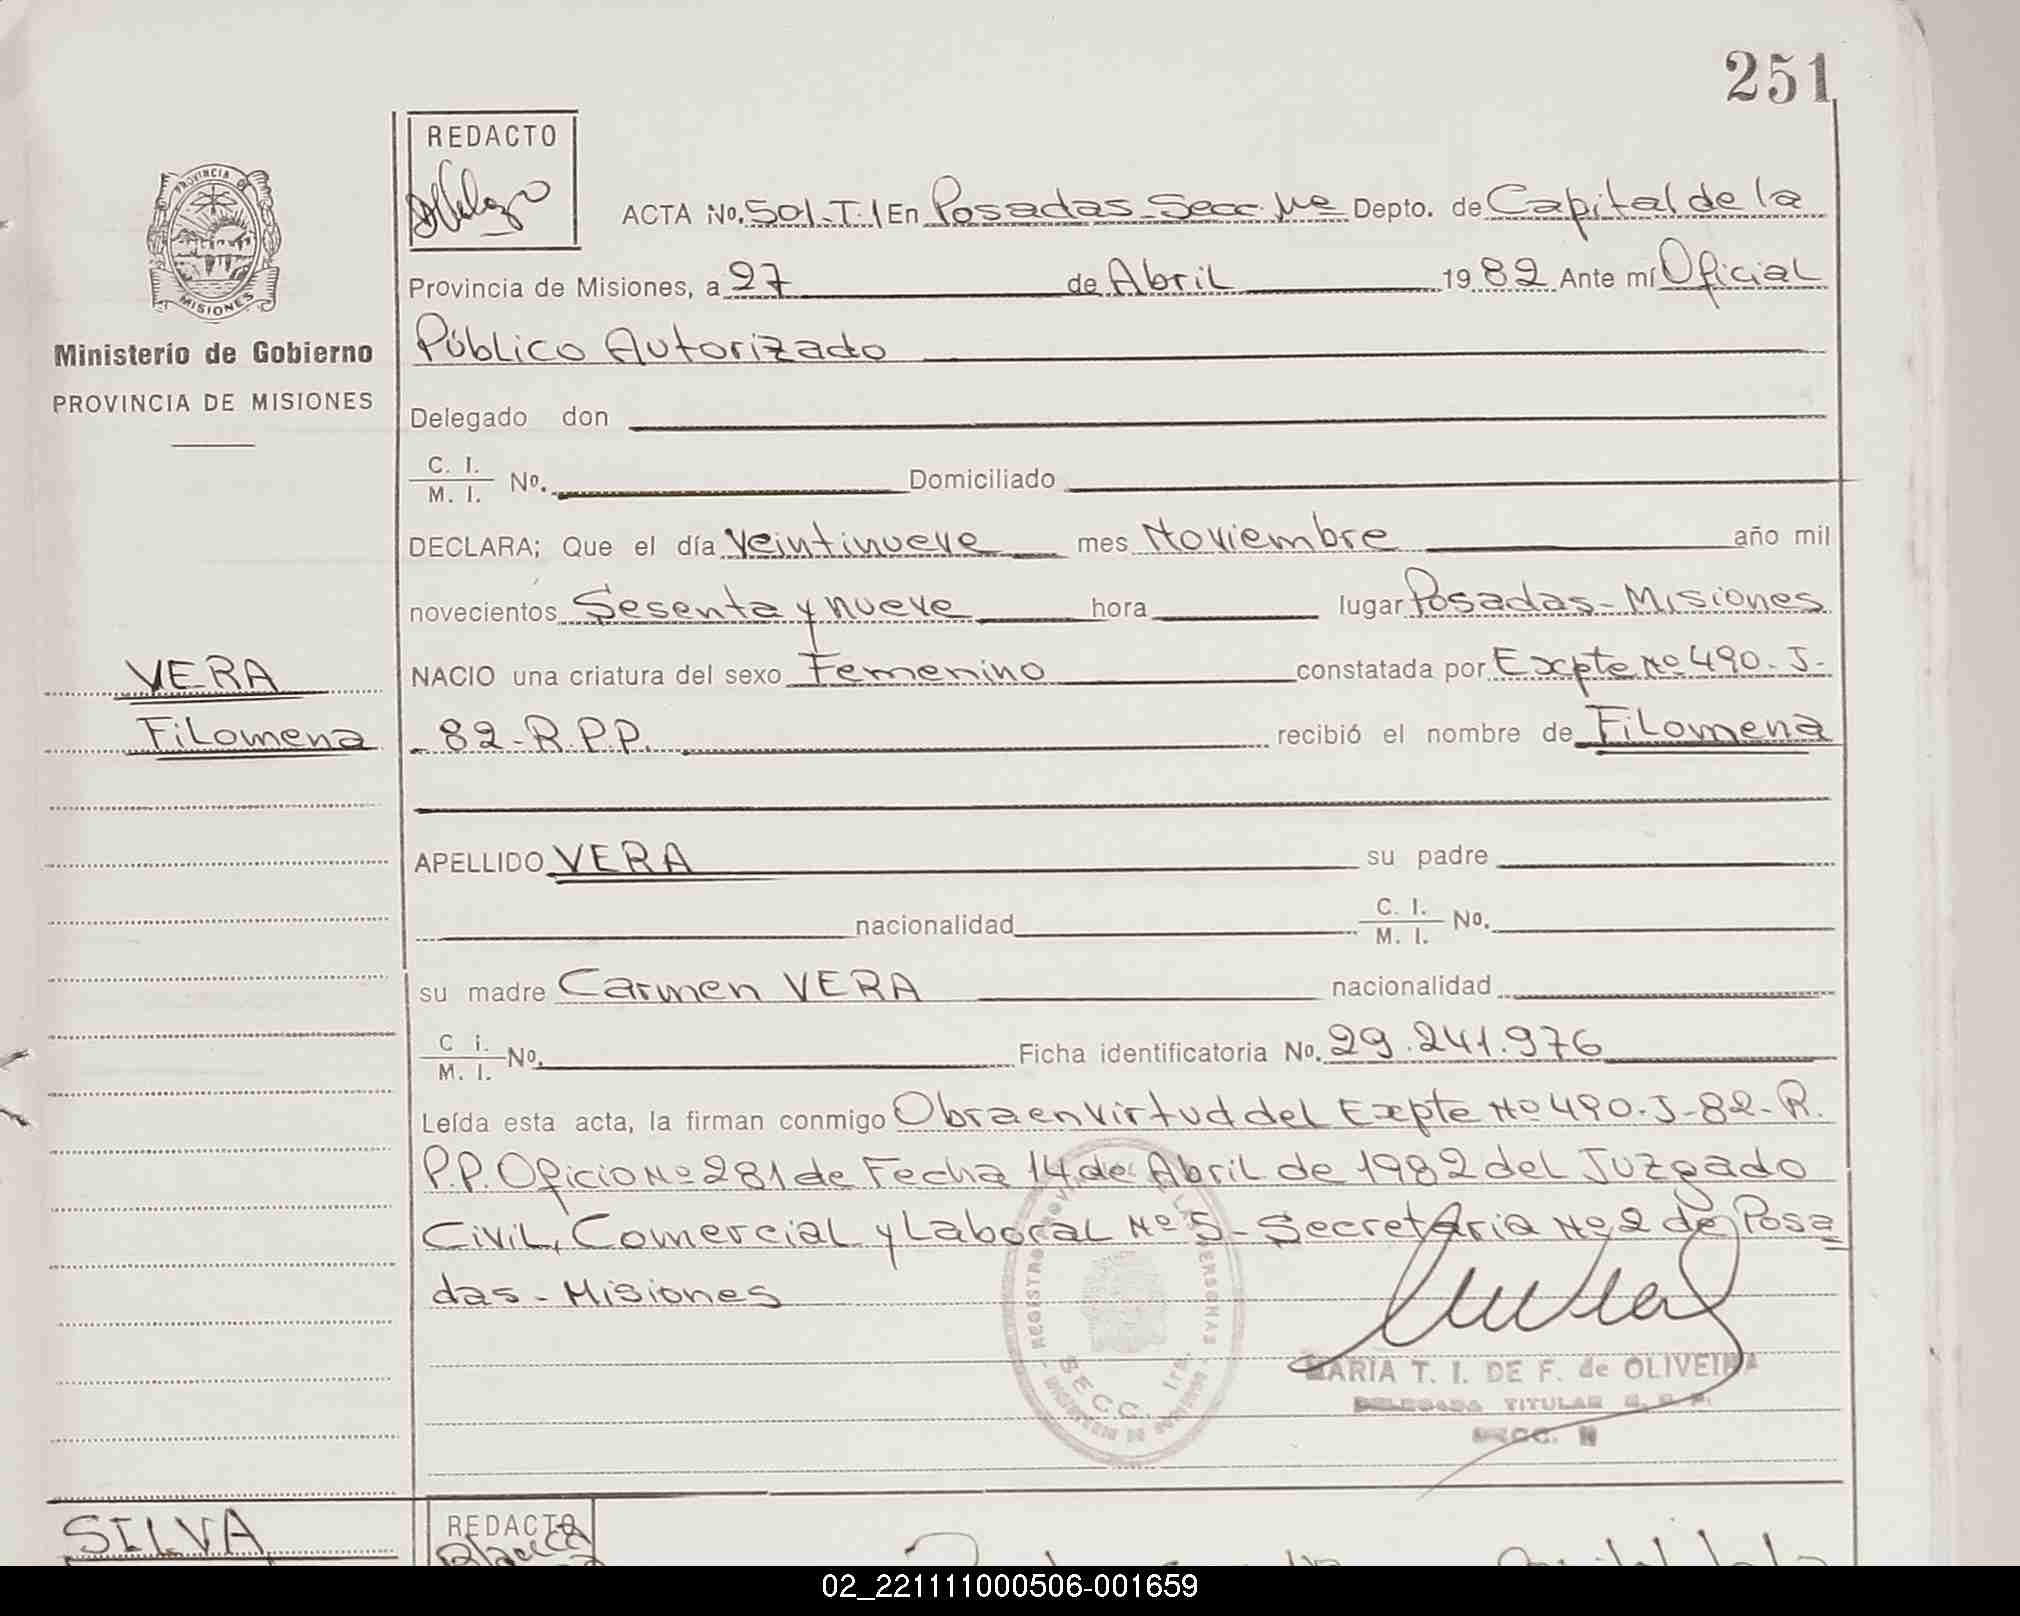 251
REDACTO
PROVINCIA DE
MISIONES
ACTA No. 501-T.I En Posadas-Secc. Depto. de Capital de la
Provincia de Misiones, a 27 de Abril 1982 Ante mí Oficial
Ministerio de Gobierno
Público Autorizado
PROVINCIA DE MISIONES
Delegado don
C. I.
M. I. No. Domiciliado
DECLARA; Que el día veintinueve mes Noviembre año mil
novecientos Sesenta y nueve hora lugar Posadas-Misiones
VERA
NACIO una criatura del sexo Femenino constatada por Expte Nº 490-J-
Filomena
-82-R.P.P. recibió el nombre de Filomena
APELLIDO VERA su padre
nacionalidad C. I.
M. I. No.
su madre Carmen VERA nacionalidad
C i.
M. I. No. Ficha identificatoria No. 29.241.976
Leída esta acta, la firman conmigo Obra en virtud del Expte Nº 490-J-82-R.
P.P. Oficio Nº 281 de Fecha 14 de Abril de 1982 del Juzgado
Civil, Comercial y Laboral Nº 5-Secretaria Nº 2 de Posa
das-Misiones
SECC. 1ra.
MARIA T. I. DE F. de OLIVEIRA
DELEGADA TITULAR
SECC.
SILVA
REDACTO
02_221111000506-001659